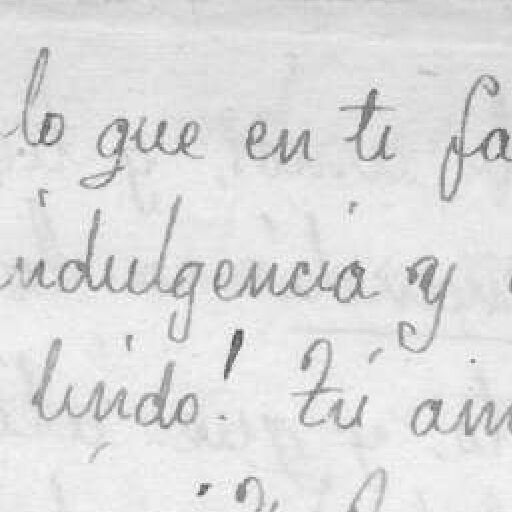 lo que en ti
indulgencia y
lindo! Tú